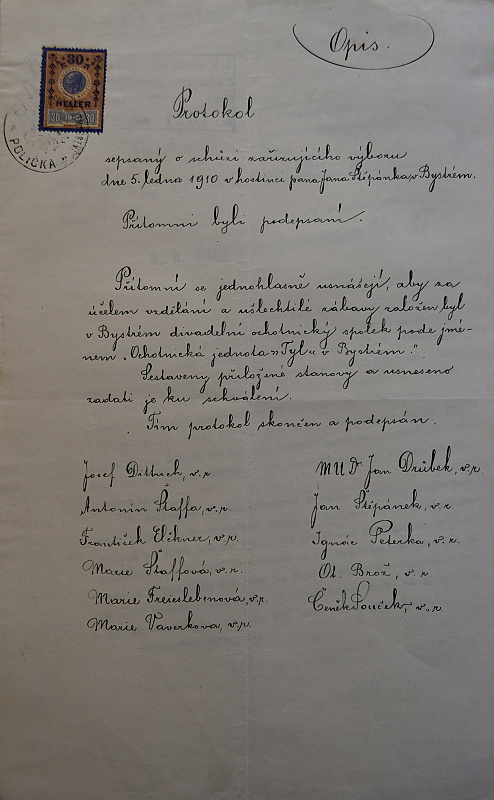 Opis.
30
HELLER
30 1910 30
POLIČKA
Protokol
sepsaný o schůzi zařizujícího výboru
dne 5. ledna 1910 v hostinci pana Jana Štěpánka v Bystrém.
Přítomni byli podepsaní.
Přítomní se jednohlasně usnášejí, aby za
účelem vzdělání a ušlechtilé zábavy založen byl
v Bystrém divadelní ochotnický spolek pode jmé-
nem „Ochotnická jednota »Tyl« v Bystrém."
Sestaveny přiložené stanovy a usneseno
zadati je ku schválení.
Tím protokol skončen a podepsán.
Josef Dittrich, v.r.
Antonín Štaffa, v.r.
František Elčkner, v.r.
Marie Štaffová, v.r.
Marie Freieslebenová, v.r.
Marie Vaverkova, v.r.
MUDr Jan Drůbek, v.r.
Jan Štěpánek, v.r.
Ignác Peterka, v.r.
Ot. Brož, v.r
Čeněk Souček, v.r.